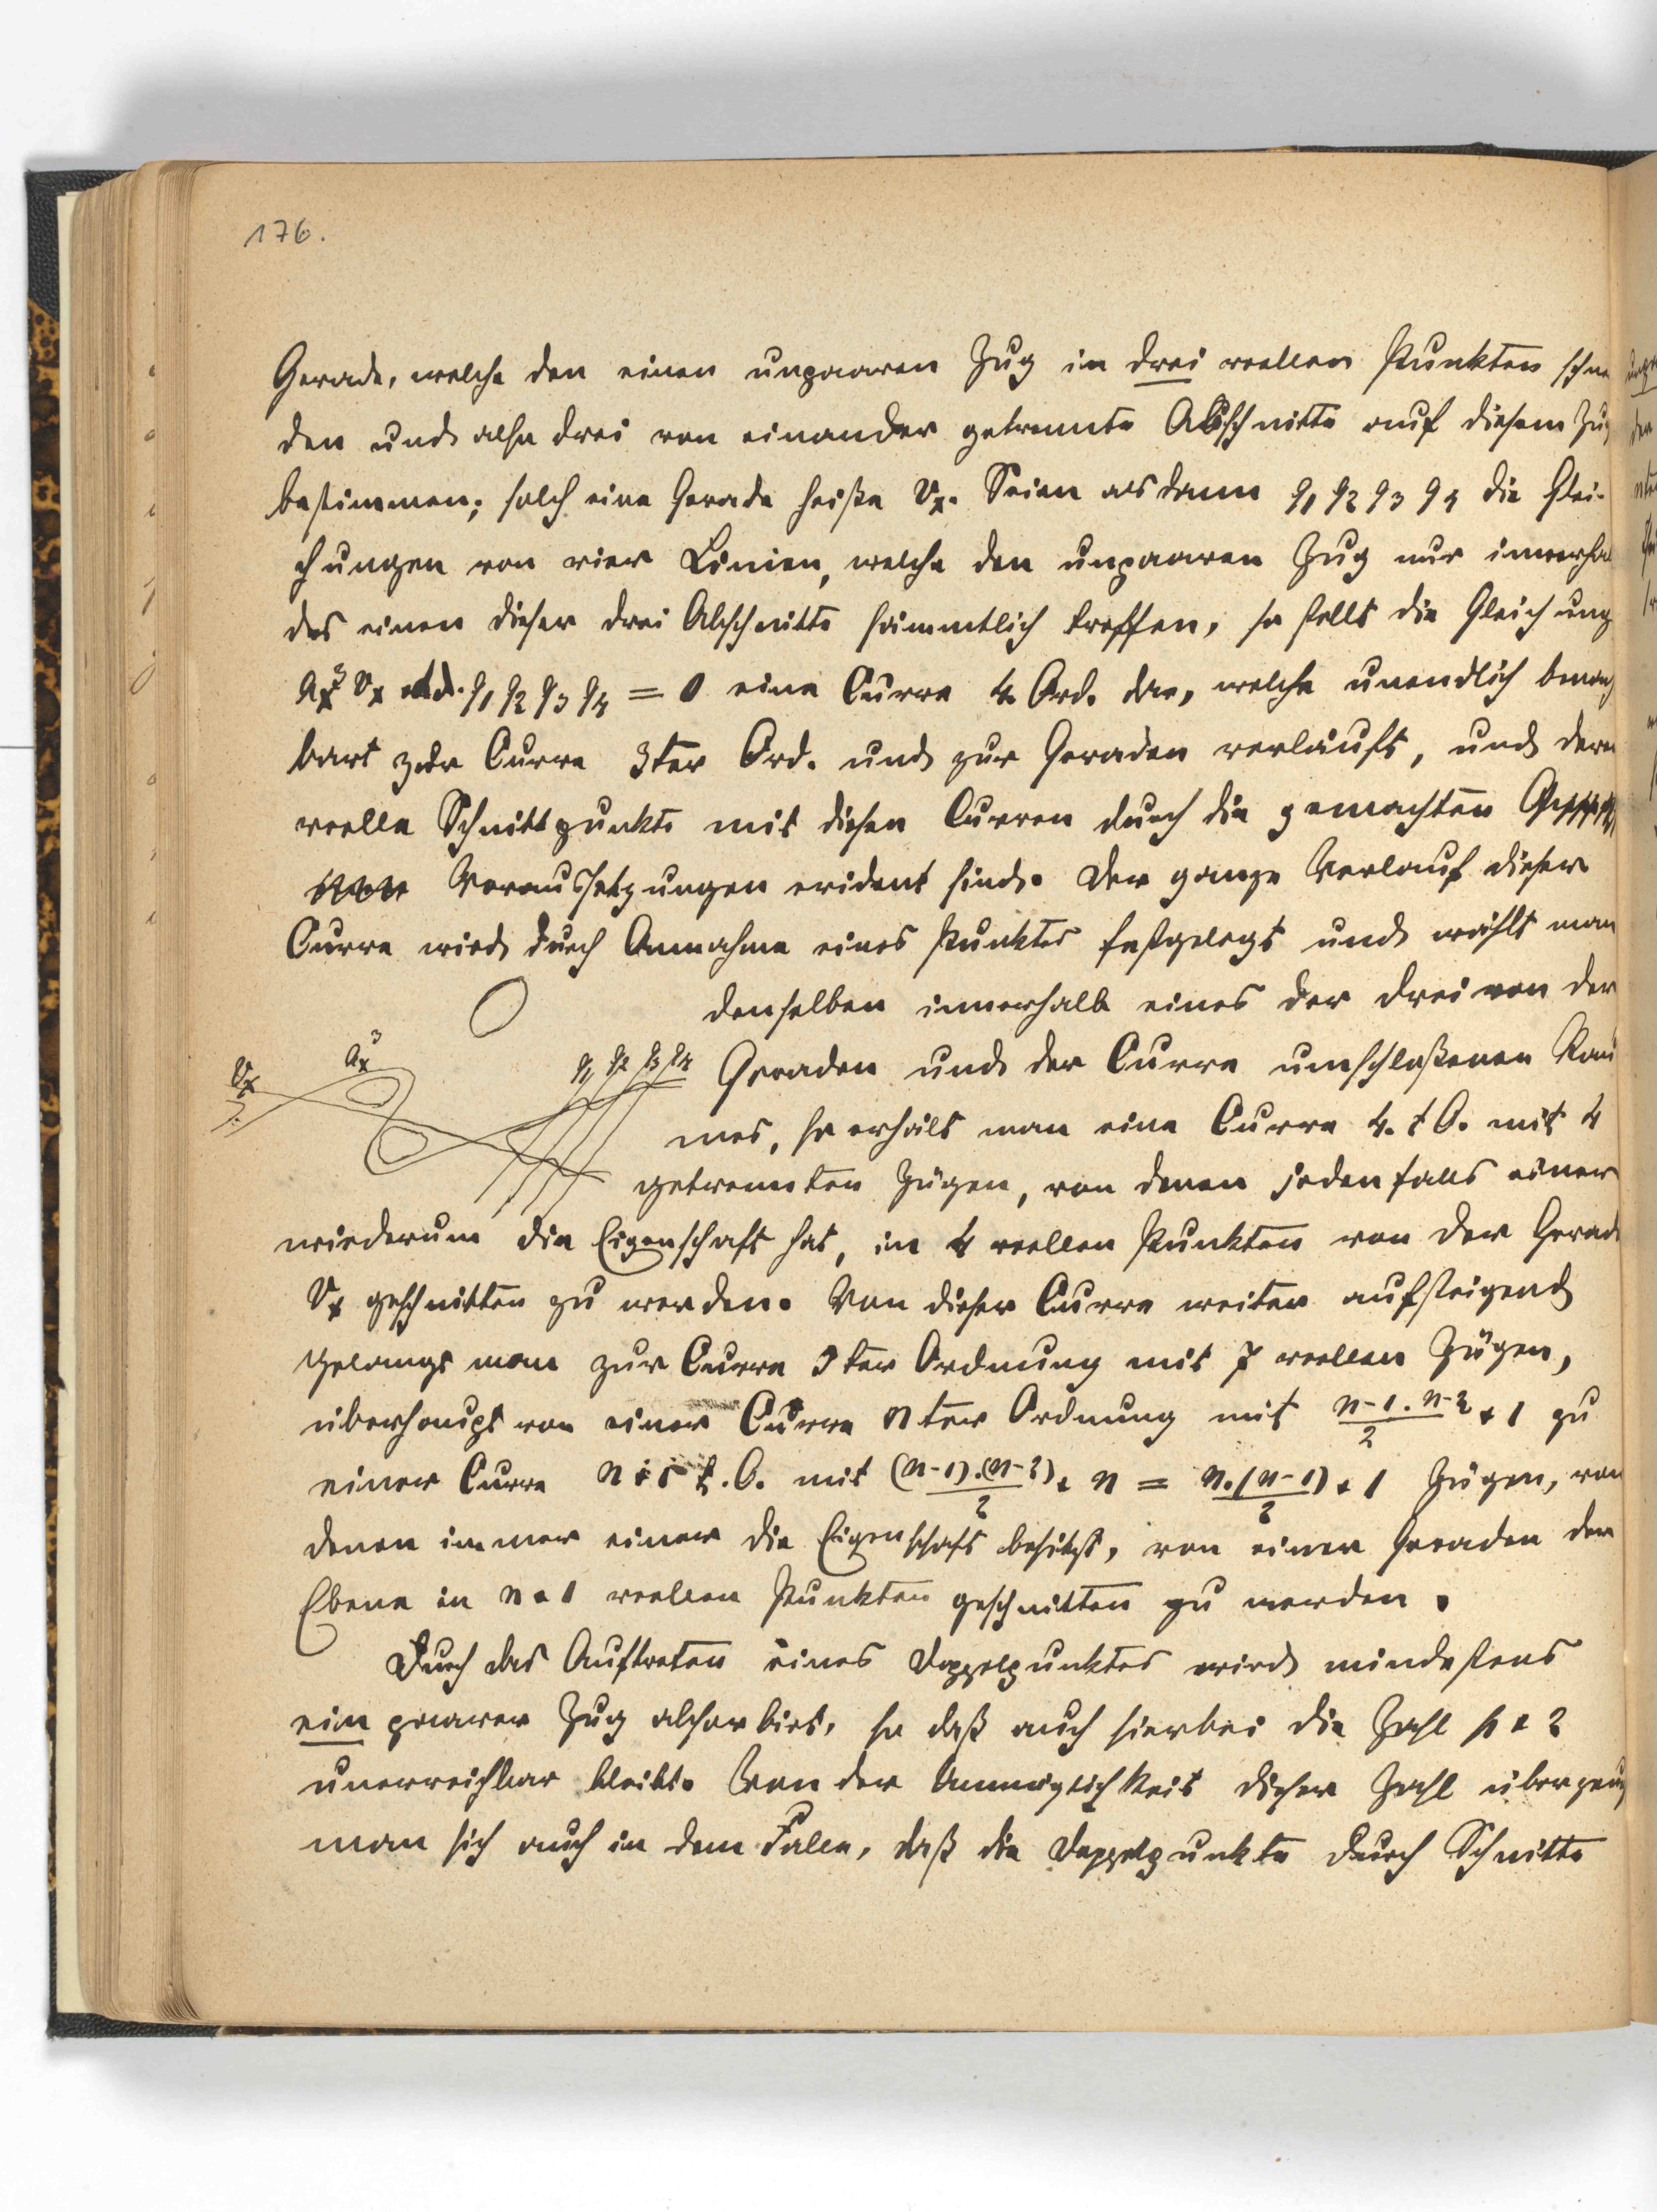 176.
Gerade, welche den einen unpaaren Zug in drei reellen Punkten schnei
den und also drei von einander getrennte Abschnitte auf diesem Zug
bestimmen; solch eine Gerade heiße vx. Seien als dann q1 q2 q3 q4 die Glei-
chungen von vier Linien, welche den unpaaren Zug nur innerhal
des einen dieser drei Abschnitte sämmtlich treffen, so stellt die Gleichung
ax³ vx + d. q1 q2 q3 q4 = 0 eine Curve 4. Ord. dar, welche unendlich benach
bart zur Curve 3ter Ord. und zur Geraden verläuft, und deren
reelle Schnittpunkte mit diesen Curven durch die gemachten
Voraussetzungen evident sind. Der ganze Verlauf dieser
Curve wird durch Annahme eines Punktes festgelegt und wählt man
denselben innerhalb eines der drei von der
vx ax³ q1 q2 q3 q4
Geraden und der Curve umschloßenen Räu
mes, so erhält man eine Curve 4. t O. mit 4
getrennten Zügen, von denen jedenfalls einer
wiederum die Eigenschaft hat, in 4 reellen Punkten von der Gerad
vx geschnitten zu werden. Von dieser Curve weiter aufsteigend
gelangt man zur Curve 5ter Ordnung mit 7 reellen Zügen,
überhaupt von einer Curve nter Ordnung mit n-1 . n-2 / 2 + 1 zu
einer Curve n+1 t. O. mit (n-1).(n-2) / 2 + n = n.(n-1) / 2 + 1 Zügen, von
denen immer einer die Eigenschaft besitzt, von einer Geraden der
Ebene in n+1 reellen Punkten geschnitten zu werden.
Durch das Auftreten eines Doppelpunktes wird mindestens
ein paarer Zug absorbirt, so daß auch hierbei die Zahl p + 2
unerreichbar bleibt. Von der Unmöglichkeit dieser Zahl überzeugt
man sich auch in dem Falle, daß die Doppelpunkte durch Schnitte